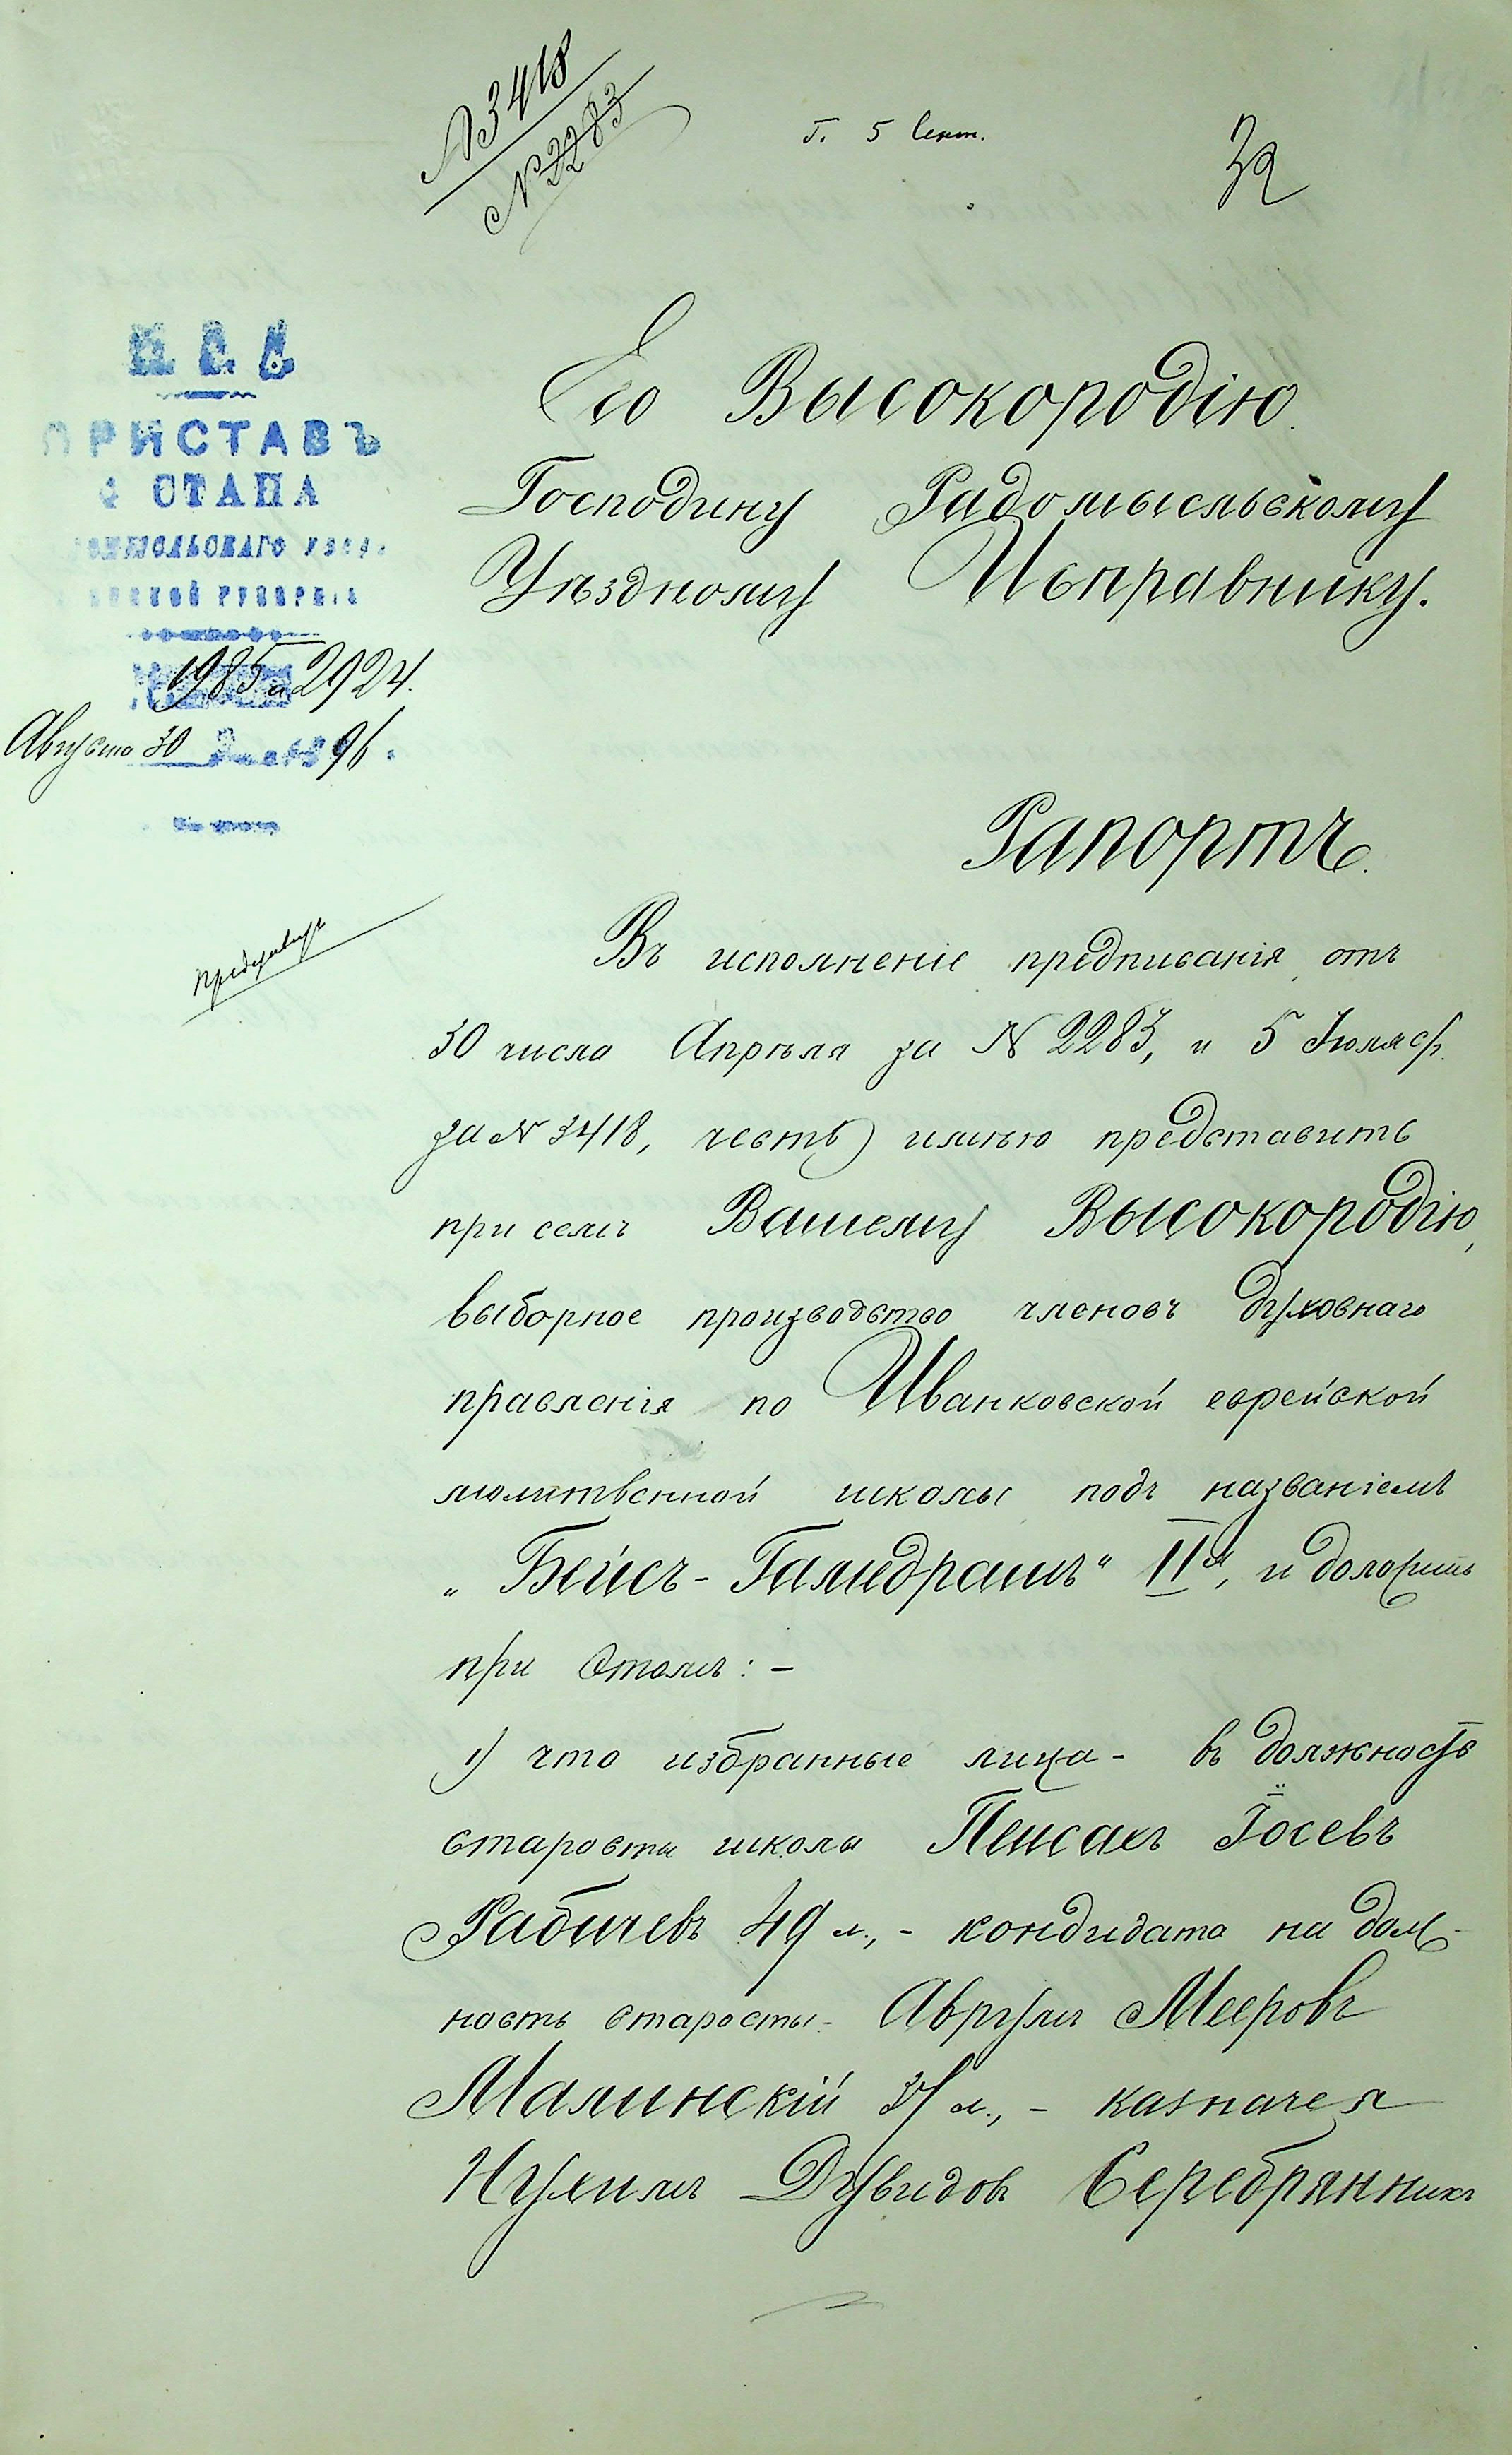 № 3418
№ 2283
Г. 5 Сент.
Его Высокородію
Господину Радомысльскому
Уѣздному Исправнику.
М. В. Д.
ПРИСТАВЪ
СТАНА
1985 и 2924.
Августа 30 дня 1896 г.
Рапортъ.
Въ исполненіе предписанія отъ
30 числа Апрѣля за № 2283, и 5 Іюля с/г.
за № 3418, честь имѣю представить
при семъ Вашему Высокородію,
выборное производство членовъ духовнаго
правленія по Иванковской еврейской
молитвенной школы подъ названіемъ
„Бейсъ-Гамедрашъ" IIй, и доложить
при этомъ: -
1) что избранные лица - въ должность
старосты школы Пейсахъ Іосевъ
Рабичевъ 49 л., - кондидата на долж-
ность старосты - Аврумъ Мееровъ
Малинскій л., - казначея
Нухимъ Дувидовъ Серебрянникъ